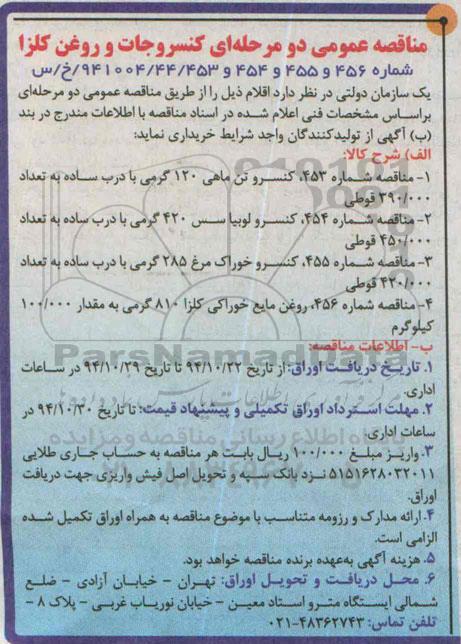 مناقصه عمومی دو مرحله‌ای کنسروجات و روغن کلزا
شماره ۴۵۶ و ۴۵۵ و ۴۵۴ و ۹۴۱۰۰۴/۴۴/۴۵۳/خ/س
یک سازمان دولتی در نظر دارد اقلام ذیل را از طریق مناقصه عمومی دو مرحله‌ای
براساس مشخصات فنی اعلام شده در اسناد مناقصه با اطلاعات مندرج در بند
(ب) آگهی از تولیدکنندگان واجد شرایط خریداری نماید:
الف) شرح کالا:
۱- مناقصه شماره ۴۵۳، کنسرو تن ماهی ۱۲۰ گرمی با درب ساده به تعداد
۳۹۰/۰۰۰ قوطی
۲- مناقصه شماره ۴۵۴، کنسرو لوبیا سس ۴۲۰ گرمی با درب ساده به تعداد
۴۵۰/۰۰۰ قوطی
۳- مناقصه شماره ۴۵۵، کنسرو خوراک مرغ ۲۸۵ گرمی با درب ساده به تعداد
۴۲۰/۰۰۰ قوطی
۴- مناقصه شماره ۴۵۶، روغن مایع خوراکی کلزا ۸۱۰ گرمی به مقدار ۱۰۰/۰۰۰
کیلوگرم
ب- اطلاعات مناقصه:
ParsNamadData
۱. تاریخ دریافت اوراق: از تاریخ ۹۴/۱۰/۲۲ تا تاریخ ۹۴/۱۰/۲۹ در ساعات
اداری.
۲. مهلت استرداد اوراق تکمیلی و پیشنهاد قیمت: تا تاریخ ۹۴/۱۰/۳۰ در
ساعات اداری.
پایگاه اطلاع رسانی مناقصه و مزایده
۳. واریز مبلغ ۱۰۰/۰۰۰ ریال بابت هر مناقصه به حساب جاری طلایی
۵۱۵۱۶۲۸۰۳۲۰۱۱ نزد بانک سپه و تحویل اصل فیش واریزی جهت دریافت
اوراق.
۴. ارائه مدارک و رزومه متناسب با موضوع مناقصه به همراه اوراق تکمیل شده
الزامی است.
۵. هزینه آگهی به‌عهده برنده مناقصه خواهد بود.
۶. محل دریافت و تحویل اوراق: تهران - خیابان آزادی - ضلع
شمالی ایستگاه مترو استاد معین - خیابان نوریاب غربی - پلاک ۸ -
تلفن تماس: ۴۸۳۶۲۷۴۳-۰۲۱